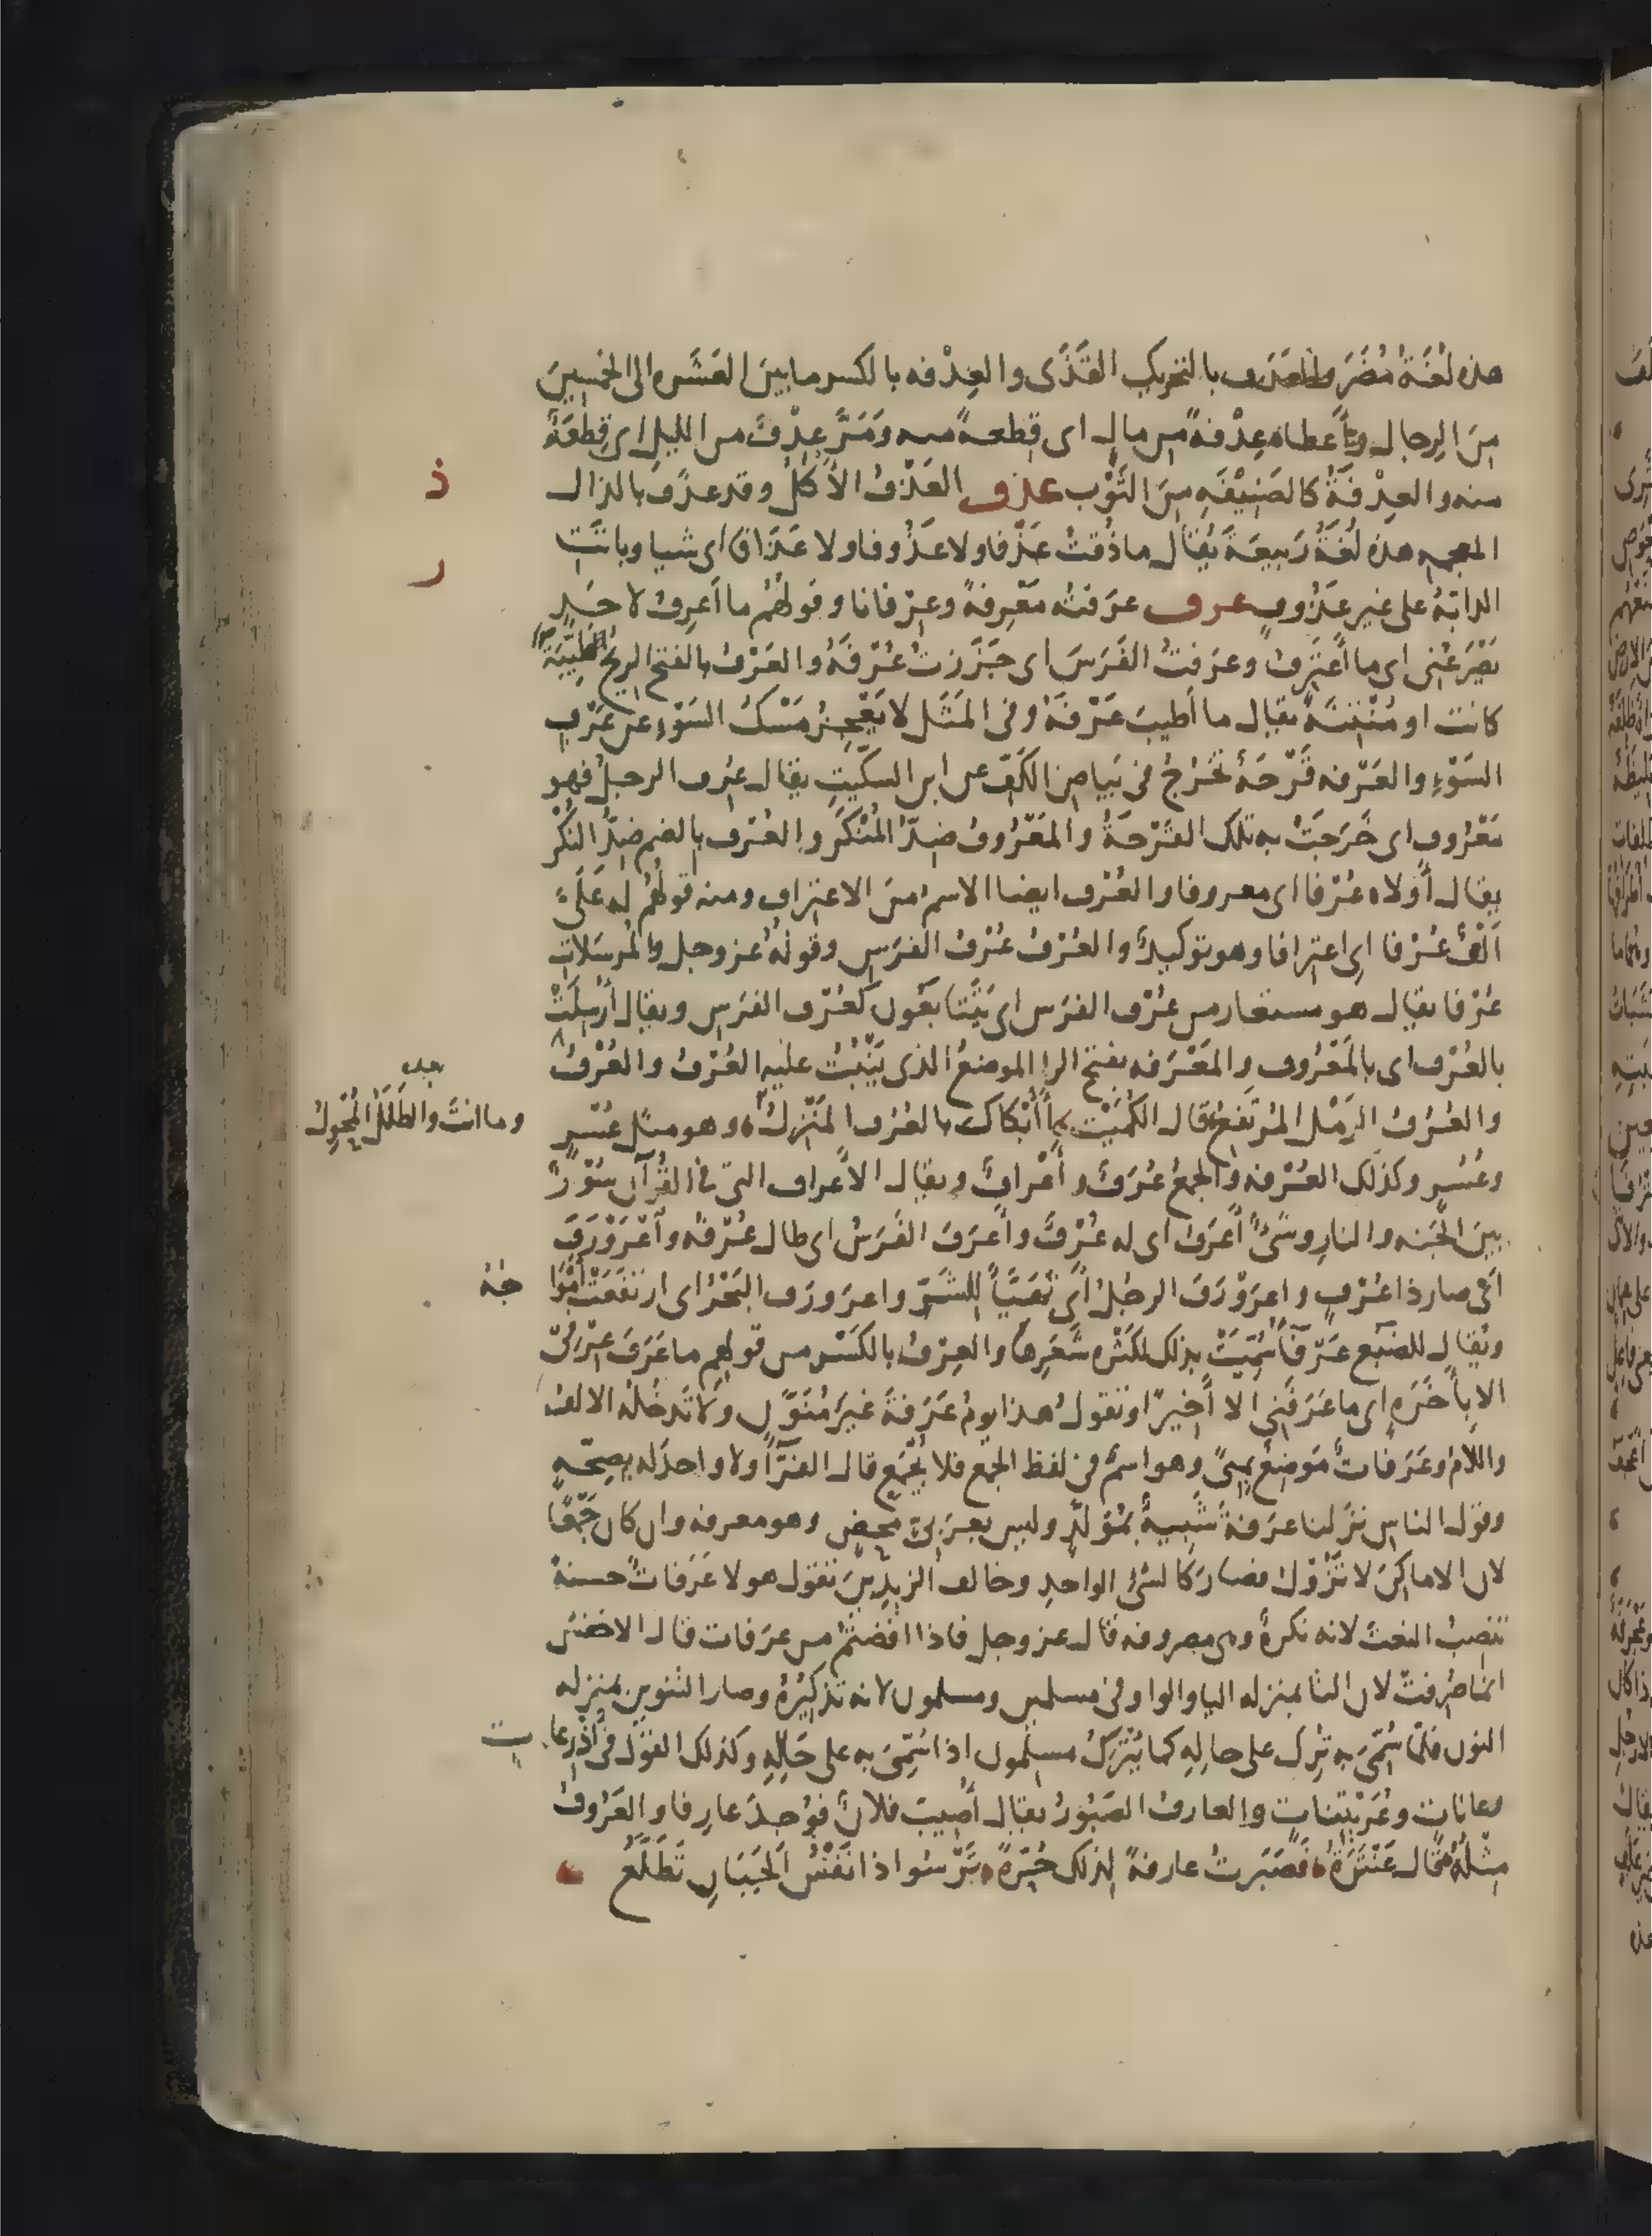 هذه لُغَةُ مُضَرَ والعَدَف بالتحريك القَذَى والعِدْفه بالكسر ما بينَ العَشَره الى الخمسِينَ
مِنَ الرِجال واَعطاه عِدْفةً من مالٍ اى قِطعةً منه وَمَرَّ عِدْفٌ من الليل اى قِطعَةٌ
منه والعِدْفَةُ كالصَنِيْفَهِ مِنَ الثَوْب عذف العَذْفُ الاَكْلُ وقد عذَف بالذال
المعجمه هذه لُغَةُ رَبيعَةَ يُقال ما ذُقتُ عَذْفا ولا عَذُوفا ولا عَذَافا اى شيا وباتَتِ
الدابّةُ على غير عَذُوفٍ عرف عرَفتُه مَعْرِفةً وعِرْفانا وقولُهُم ما اَعرِفُ لاحَدٍ
يَصْرَعُنى اى ما اَعتَرِفُ وعرَفتُ الفَرَسَ اى جَزَزتُ عُرْفَهُ والعَرْفُ بالفتح الريحُ طَيِّبَةً
كانت او مُنْتِنَةً يقال ما اَطيبَ عَرْفَهُ وفى المَثَل لا يَعْجِزُ مَسْكُ السَوْءِ عن عَرْفِ
السَوْءِ والعَرْفه قَرْحَةٌ تخرُجُ فى بَياضِ الكَفّ عن ابن السكّيتِ يقال عُرِف الرجلُ فهو
مَعْرُوف اى خَرَجَتْ به تلك القَرْحَةُ والمَعْرُوفُ ضِدّ المُنْكَر والعُرْف بالضم ضِدُّ النُكْر
يقال اَوْلاه عُرْفا اى معروفا والعُرْف ايضا الاسمُ منَ الاعتِراف ومنه قولهُم له عَلَىَّ
اَلْفٌ عُرْفا اى اعترافا وهو توكيدٌ والعُرْفُ عُرْفُ الفَرَسِ وقولُهُ عزوجل والمُرسَلاتِ
عُرْفا يقال هو مستعار من عُرْف الفرَس اى يَتَتابَعُون كَعُرْف الفرَسِ ويقال اُرْسِلَتْ
بالعُرْف اى بالمَعْرُوف والمَعْرَفه بفتح الرا الموضعُ الذى يَنْبُتُ عليه العُرْفُ والعُرْفُ
والعُرُفُ الرَمْل المُرْتَفِعُ قال الكُمَيْت أَأَبْكاكَ بالعُرُف المَنْزِلُ وهو مثل عُسْرٍ
وما انتَ والطَلَلُ المُحْوِلُ
وعُسُرٍ وكذلك العُرْفه والجمعُ عُرَفٌ واَعْرافٌ ويقال الاَعراف التى فى القُرآن سُوْرٌ
بينَ الجَنه والنارِ وشىٌ اَعرَفُ اى له عُرْفٌ واَعرَفَ الفَرَسُ اى طال عُرْفُه واعْرَوْرَفَ
اَى صار ذا عُرْفٍ واعرَوْرَفَ الرجُلُ اى تَهَيَّأَ للشَرِّ واعرَورَف البَحْرُ اى ارتَفَعَتْ اَمْوا
جُهُ
ويُقال للضَبُع عَرْفآءُ سُمِّيَتْ بذلك لكَثْرَه شَعَرِها والعِرْفُ بالكَسْر من قولهم ما عَرَفَ عِرْفِى
الا باَخَرَهٍ اى ما عَرَفَنِى الا اَخِيرًا وتقولُ هذا يومُ عَرَفَةَ غيرَ مُنَوَّن ولا تَدخُله الالفُ
واللامُ وعَرَفاتٌ مَوضِعٌ بمِنىً وهو اسمٌ فى لفظ الجمْع فلا يُجْمَع قال الفرّآءُ ولا واحدَ له بصِحّه
وقول الناس نزَلنا عرَفةَ شَبِيهٌ بمُوَلَّدٍ وليس بعرَبىٍّ محْضٍ وهو معرفه وان كان جَمْعًا
لان الاماكِنَ لا تَزُوْلُ فصارَ كالشىْ الواحدِ وخالف الزيدِيْنَ تقول هولا عَرَفاتٌ حسنةً
تنصِبُ النعتَ لانه نكرةٌ وهى مصروفه قال عزوجل فاذا افَضتُمْ من عرَفات قال الاخفش
انما صُرِفتْ لان التا بمنزله اليا والواو فى مسلمين ومسلمون لانه تذكِيْرُهُ وصار التنوين بمنزله
النون فلمّا سُمِّىَ به تُرِك على حالِهِ كما يُتْرَكُ مسلمون اذا سُمِّىَ به على حَالِهِ وكذلك القوْل فى اَذْرِعات
وعانات وعُرَيْتِنات والعارِفُ الصَبُوْرُ يقال اُصِيبَ فلانٌ فوُجِدَ عارِفا والعَرُوفُ
مِثْلُهُ قال عَنْتَرَةُ فصَبَرتُ عارفةً لذلك حُرَّةً تَرْسُوا اذا نَفْسُ الجَبَانِ تَطَلَّعُ
ذ
ر